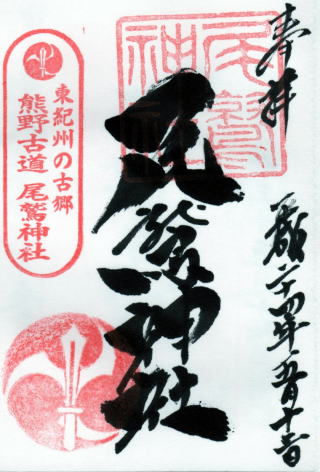 奉拝
尾鷲神社
尾鷲神社
平成二十四年五月十二日
東紀州の古郷
熊野古道 尾鷲神社